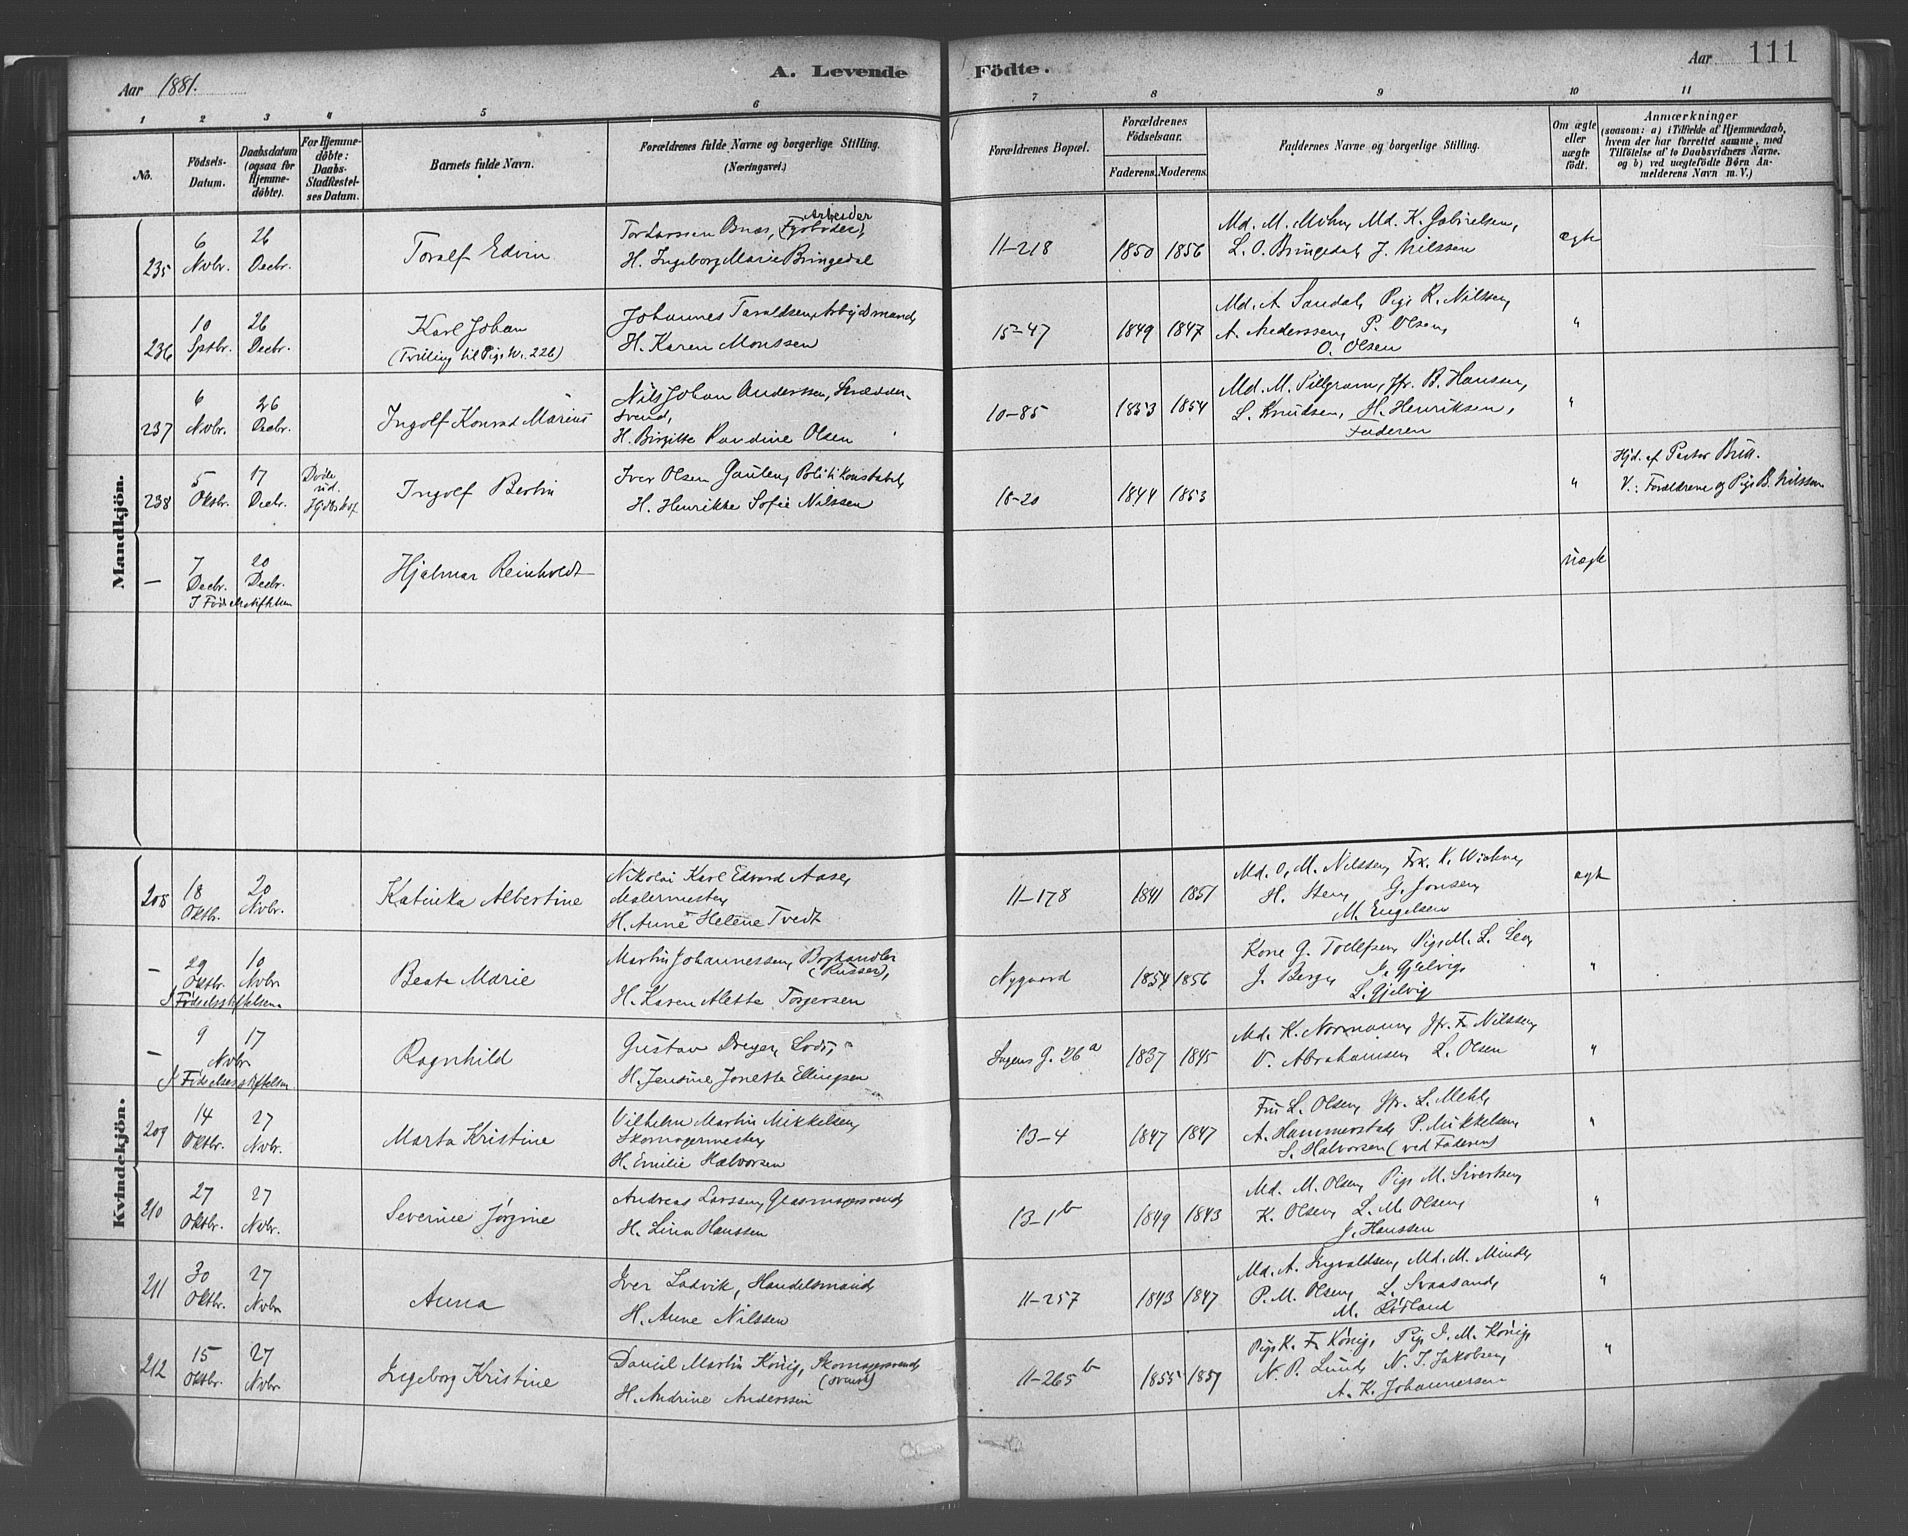 Aar 1881.
A. Levende Födte.
Aar 111
1 2 3 4 5 6 7 8 9 10 11
No.
Födsels-Datum.
Daabsdatum (ogsaa for Hjemme-döbte).
For Hjemme-döbte: Daabs-Stadfæstel-ses Datum.
Barnets fulde Navn.
Forældrenes fulde Navne og borgerlige Stilling. (Næringsvei.)
Forældrenes Bopæl.
Forældrenes Födselsaar.
Faderens. Moderens.
Faddernes Navne og borgerlige Stilling.
Om ægte eller uægte födt.
Anmærkninger
(saasom: a) i Tilfælde af Hjemmedaab, hvem der har forrettet samme, med Tilföielse af to Daabsvidners Navne, og b) ved uægtefödte Börn An-melderens Navn m. V.)
Mandkjön.
235 6 Novbr. 26 Decbr. Toralf Edvin
Arbeider
H. Ingeborg Marie Bringedal
11-218 1850 1856
Md. M. Mohn, Md. K. Gabrielsen,
L. O. Bringedal, J. Nilssen
ægte
236 10 Sptbr. 26 Decbr. Karl Johan
(Tvilling til Pige Nr. 226)
Johannes Taraldsen, Arbeidsmand,
H. Karen Monssen
15-47 1849 1847
Md. A. Sandal, Pige R. Nilssen,
A. Anderssen, P. Olsen,
O. Olsen
"
237 6 Novbr. 26 Decbr. Ingolf Konrad Marius
Nils Johan Anderssen, Skrædder-
svend,
H. Birgitte Pandine Olsen
10-85 1853 1854
Md. M. Pillgram, Jfr. B. Hanssen,
L. Knudsen, H. Henriksen,
Faderen
"
238 5 Oktbr. 17 Decbr.
Ingolf Bertin
Iver Olsen Gauten, Politikonstabel,
H. Henrikke Sofie Nilssen
18-20 1844 1853
"
Hjd. af Pastor
V.: Forældrene og Pige B. Nilssen
— 7 Decbr. 20 Decbr. Hjalmar Reinholdt
I Fødselsstiftelsen
uægte
Kvindekjön.
208 18 Oktbr. 20 Novbr. Katinka Albertine
Nikolai Karl Edvard Aase,
Malermester,
H. Anne Helene Tvedt
11-178 1841 1851
Md. O. M. Nilssen, Frk. K. Wiehn,
H. Sten, G. Jonsen,
M. Engelsen
ægte
— 29 Oktbr. 10 Novbr. Beate Marie
I Fødselsstiftelsen
Martin Johannessen,
H. Karen Alette Torgersen
Nygaard 1854 1856
Kone G. Tollefsen, Pige M. L. Lea,
J. Berge, J. Gjelvig,
L. Gjelvig
"
— 9 17 Novbr. Ragnhild
I Fødselsstiftelsen
Gustav Dreyer, Lods,
H. Jensine Jonette Ellingsen
G. 26 a 1837 1845
Md. K. Normann, Jfr. F. Nilssen,
V. Abrahamsen, L. Olsen
"
209 14 Oktbr. 27 Novbr. Marta Kristine
Vilhelm Martin Mikkelsen,
Skomagermester,
H. Emilie Halvorsen
13-4 1847 1847
Fru L. Olsen, Jfr. L. Mehl,
A. Hammerstad, P. Mikkelsen,
S. Halvorsen (ved Faderen)
"
210 27 Oktbr. 27 Novbr. Severine Jørgine
Andreas Larssen, Glasmagersvend,
H. Lina Hanssen
13-1 b 1849 1843
Md. M. Olsen, Pige M. Sivertsen,
K. Olsen, L. M. Olsen,
J. Hanssen
"
211 30 Oktbr. 27 Novbr Anna
Iver Ladvik, Handelsmand,
H. Anne Nilssen
11-257 1843 1847
Md. A. Ingvaldsen, Md. M. Minde,
P. M. Olsen, L. Svaasand,
M. Rødland
"
212 15 Oktbr. 27 Novbr Ingeborg Kristine
Daniel Martin König, Skomagersvend
(svensk)
H. Andrine Anderssen
11-265 b 1855 1857
Pige K. F. König, Pige I. M. König,
N. P. Lund, N. T. Jakobsen,
A. K. Johannessen
"